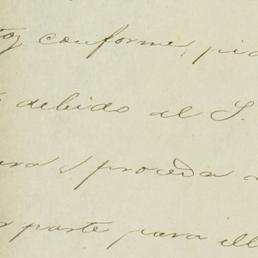 conforme, pi
debido al S.
para proceda a
parte para ell